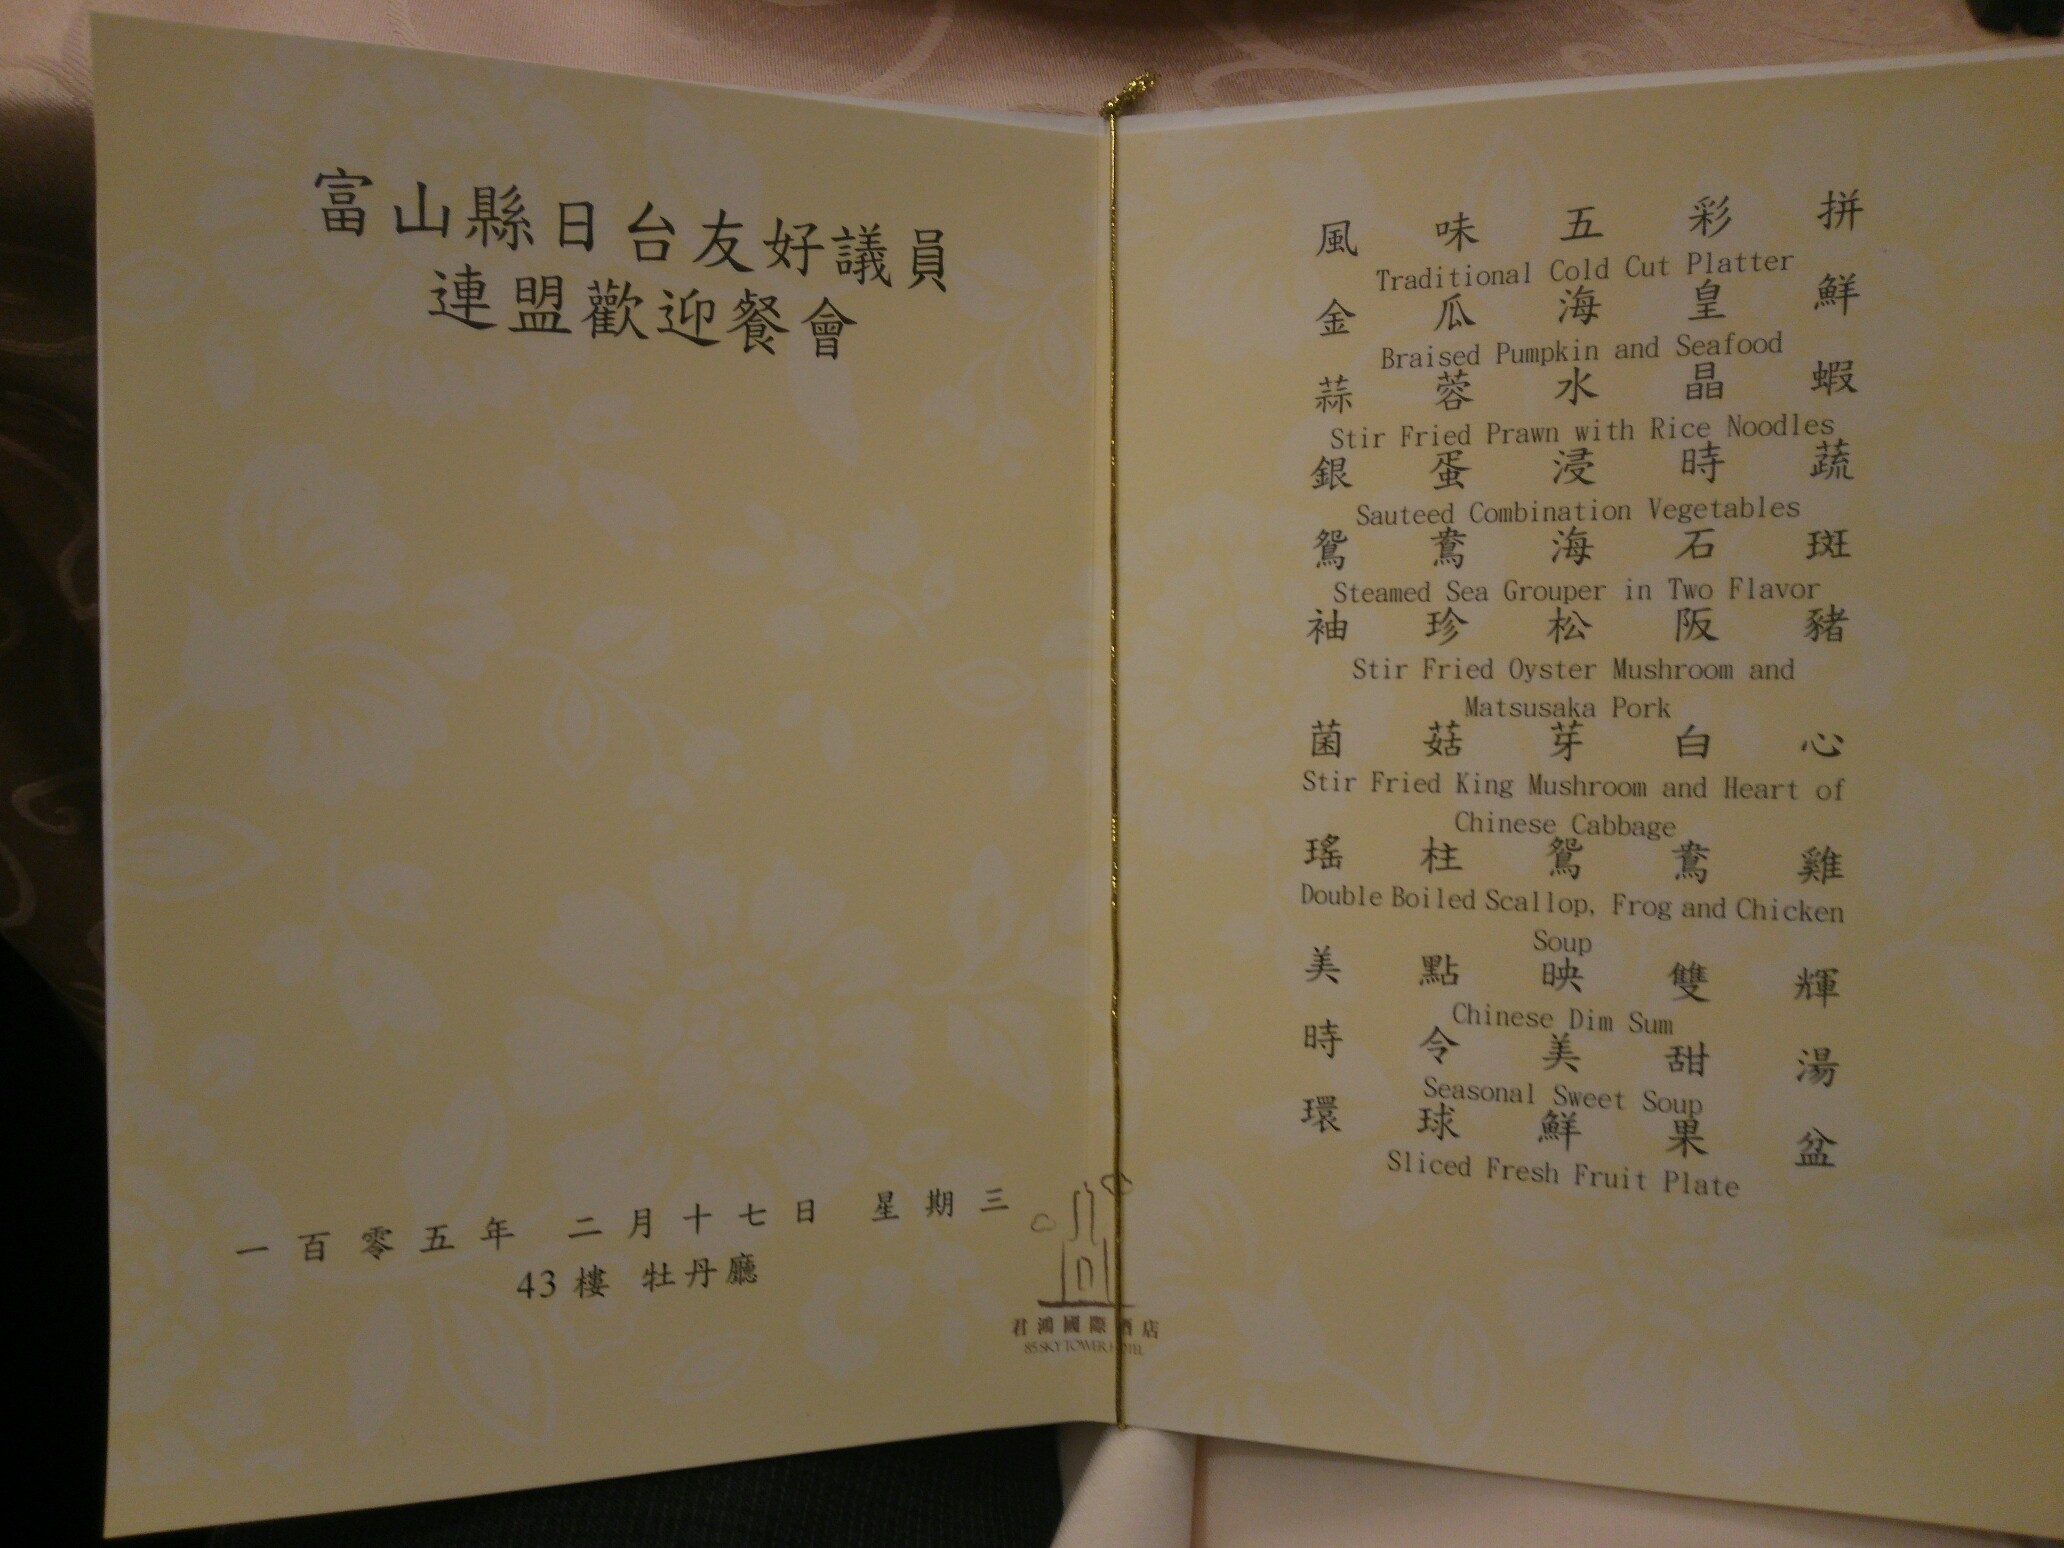 富山縣日台友好議員
連盟歡迎餐會
一百零五年 二月十七日 星期三
43樓 牡丹廳
君鴻國際酒店
85 SKY TOWER HOTEL
風味五彩拼
Traditional Cold Cut Platter
金瓜海皇鮮
Braised Pumpkin and Seafood
蒜蓉水晶蝦
Stir Fried Prawn with Rice Noodles
銀蛋浸時蔬
Sauteed Combination Vegetables
鴛鴦海石斑
Steamed Sea Grouper in Two Flavor
袖珍松阪豬
Stir Fried Oyster Mushroom and
Matsusaka Pork
菌菇芽白心
Stir Fried King Mushroom and Heart of
Chinese Cabbage
瑤柱鴛鴦雞
Double Boiled Scallop, Frog and Chicken
Soup
美點映雙輝
Chinese Dim Sum
時令美甜湯
Seasonal Sweet Soup
環球鮮果盆
Sliced Fresh Fruit Plate